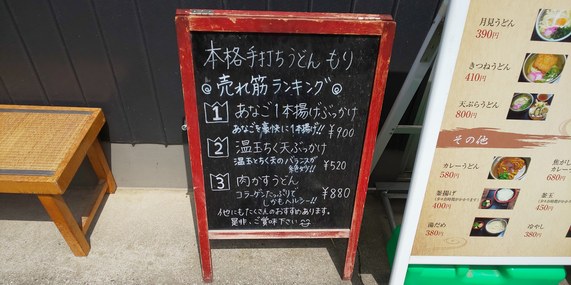 本格手打ちうどん もり
売れ筋ランキング
1 あなご1本揚げぶっかけ
あなごを豪快に1本揚げ!! ¥900
2 温玉ちく天ぶっかけ
温玉とちく天のバランスが
絶妙!! ¥520
3 肉かすうどん
コラーゲンたっぷりで
しかもヘルシー!! ¥880
他にもたくさんのおすすめあります。
是非、ご賞味下さい
月見うどん
390円
きつねうどん
410円
天ぷらうどん
800円
その他
カレーうどん
580円
680円
釜揚げ
400円
釜玉
450円
湯だめ
380円
冷やし
380円